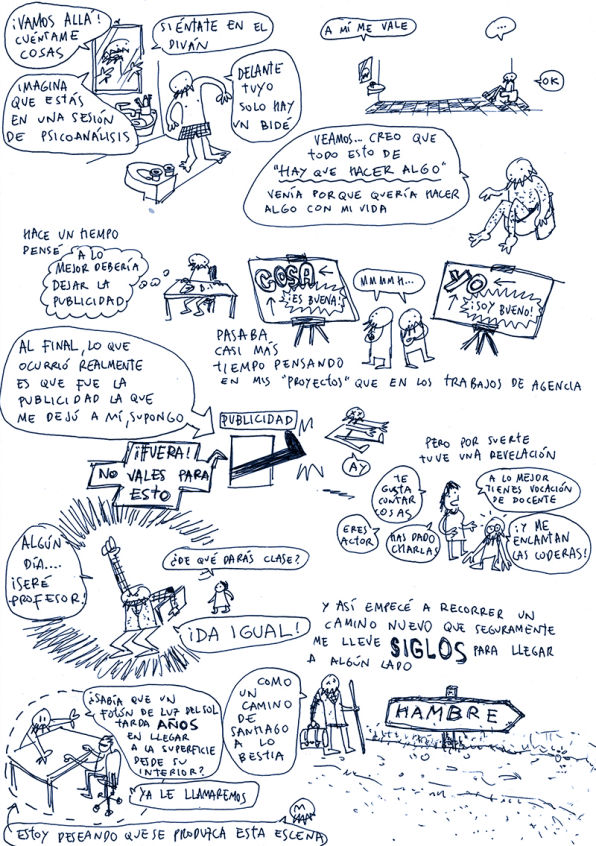 ¡VAMOS ALLÁ!
CUÉNTAME
COSAS
SIÉNTATE EN EL
DIVÁN
IMAGINA
QUE ESTÁS
EN UNA SESIÓN
DE PSICOANÁLISIS
DELANTE
TUYO
SOLO HAY
UN BIDÉ
A MÍ ME VALE
...
OK
VEAMOS... CREO QUE
TODO ESTO DE
"HAY QUE HACER ALGO"
VENÍA PORQUE QUERÍA HACER
ALGO CON MI VIDA
HACE UN TIEMPO
PENSÉ
A LO
MEJOR DEBERÍA
DEJAR LA
PUBLICIDAD
COSA
¡ES BUENA!
MMMMH...
YO
¡SOY BUENO!
PASABA
CASI MÁS
TIEMPO PENSANDO
EN MIS "PROYECTOS" QUE EN LOS TRABAJOS DE AGENCIA
AL FINAL, LO QUE
OCURRIÓ REALMENTE
ES QUE FUE LA
PUBLICIDAD LA QUE
ME DEJÓ A MÍ, SUPONGO
PUBLICIDAD
¡FUERA!
NO VALES PARA
ESTO
AY
PERO POR SUERTE
TUVE UNA REVELACIÓN
TE
GUSTA
CONTAR
COSAS
A LO MEJOR
TIENES VOCACIÓN
DE DOCENTE
ERES
ACTOR
HAS DADO
CHARLAS
¡Y ME
ENCANTAN
LAS CODERAS!
ALGÚN
DÍA....
¡SERÉ
PROFESOR!
¿DE QUÉ DARÁS CLASE?
¡DA IGUAL!
Y ASÍ EMPECÉ A RECORRER UN
CAMINO NUEVO QUE SEGURAMENTE
ME LLEVE SIGLOS PARA LLEGAR
A ALGÚN LADO
¿SABÍA QUE UN
FOTÓN DE LUZ DEL SOL
TARDA AÑOS
EN LLEGAR
A LA SUPERFICIE
DESDE SU
INTERIOR?
YA LE LLAMAREMOS
COMO
UN
CAMINO
DE
SANTIAGO
A LO
BESTIA
HAMBRE
ESTOY DESEANDO QUE SE PRODUZCA ESTA ESCENA